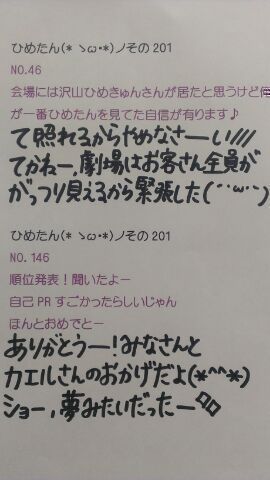 ひめたん(* ゝω･*)ノその 201
NO.46
会場には沢山ひめきゅんさんが居たと思うけど俺
が一番ひめたんを見てた自信が有ります♪
て照れるからやめなさーい///
てかねー,劇場はお客さん全員が
がっつり見えるから緊張した(´･ω･`)
ひめたん(* ゝω･*)ノその 201
NO. 146
順位発表！聞いたよー
自己 PR すごかったらしいじゃん
ほんとおめでとー
ありがとうー!みなさんと
カエルさんのおかげだよ(*^^*)
ショー,夢みたいだったー◇◇